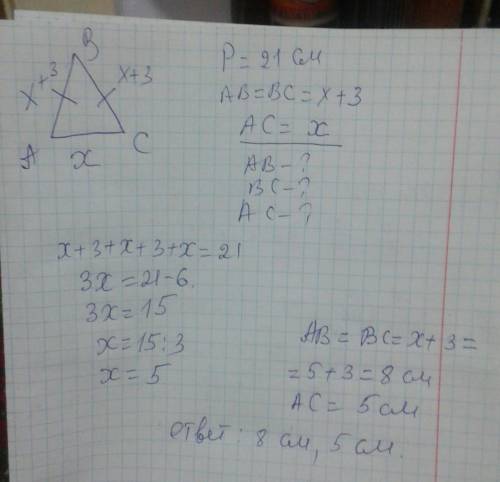 B
x+3
x+3
A
x
C
P = 21 см
AB=BC=x+3
AC= x
AB-?
BC-?
AC-?
x+3+x+3+x=21
3x=21-6.
3x=15
x=15:3
x=5
AB= BC=x+3=
=5+3=8 см
AC= 5 см
ответ: 8 см, 5 см.